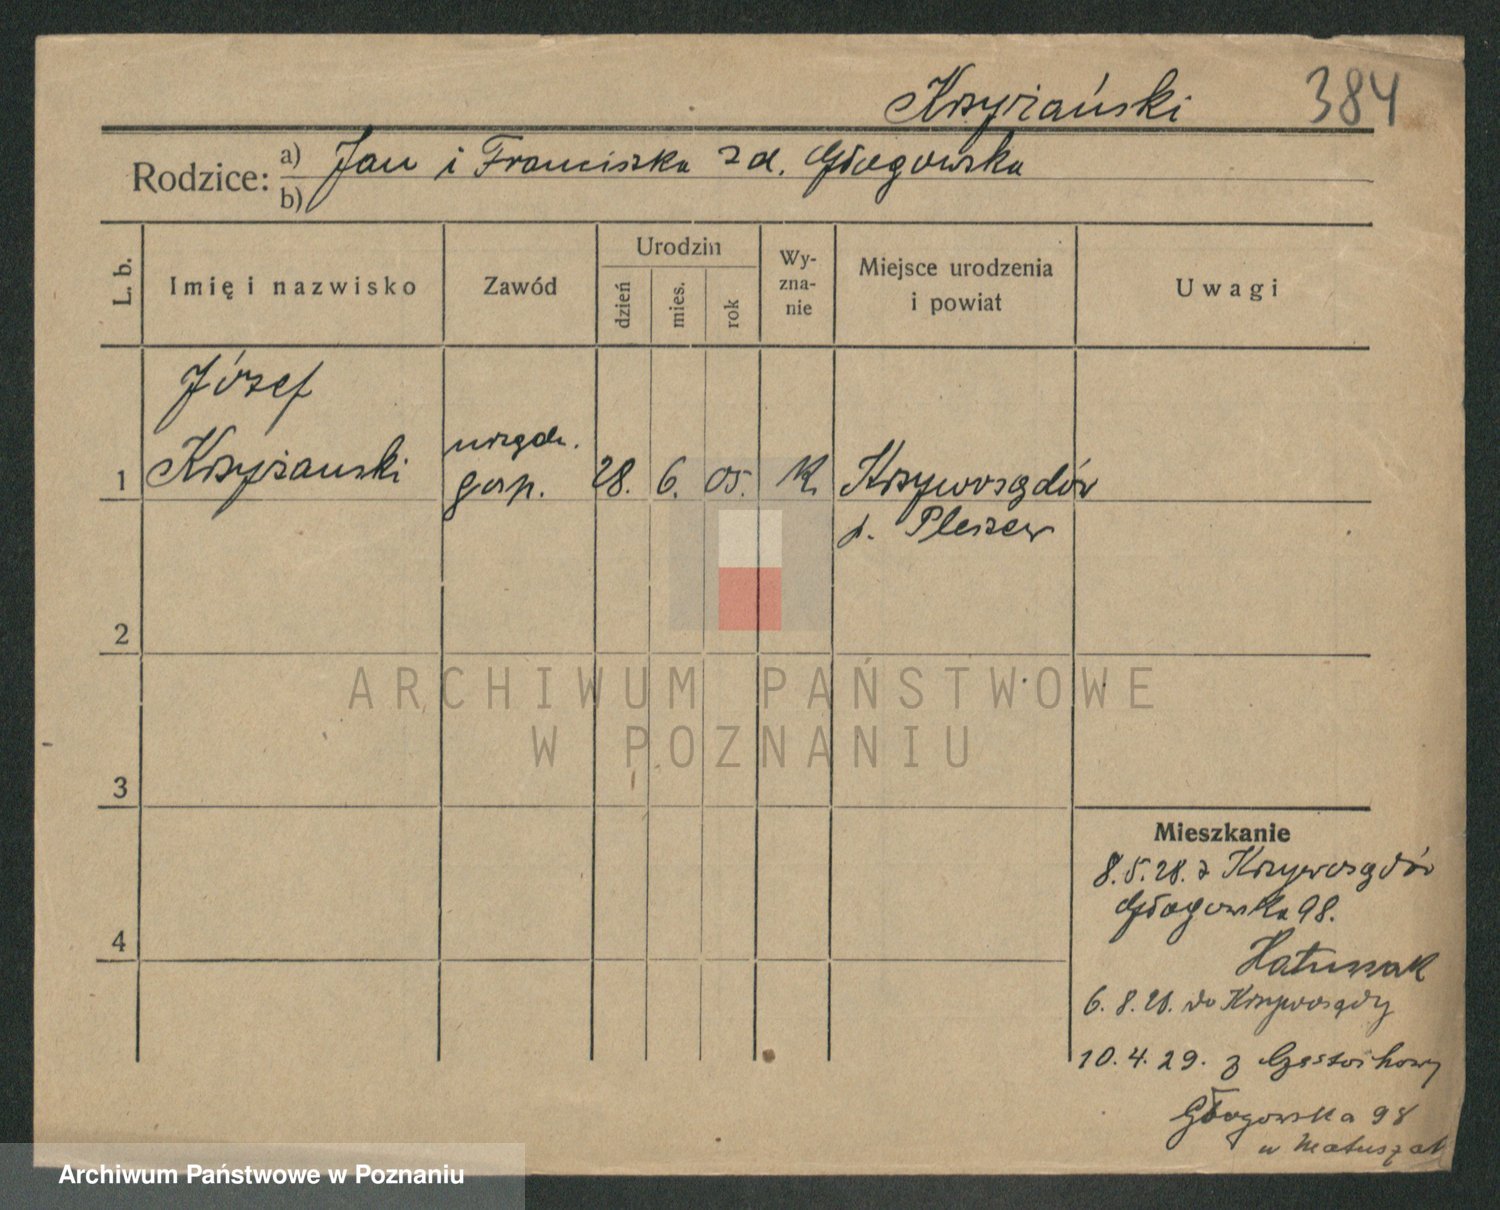 Krzyżański 384
Rodzice: a) Jan i Franciszka z d. Głogowska
b)
L. b. Imię i nazwisko Zawód Urodzin dzień mies. rok Wyznanie Miejsce urodzenia i powiat Uwagi
Józef
urzędn.
1 Krzyżanski gosp. 28. 6. 05. K. Krzywosądów
p. Pleszew
2
ARCHIWUM PAŃSTWOWE
W POZNANIU
3
Mieszkanie
8.5.28. z Krzywosądów
Głogowska 98.
Matuszak
4
6.8.28. do Krzywosądy
10.4.29. z
Głogowska 98
u Matuszak
Archiwum Państwowe w Poznaniu